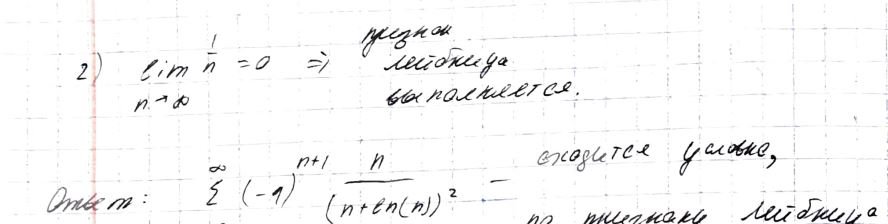 2) lim 1/n = 0 ⇒ признак лейбница выполняется.
n→∞
Ответ: ∞ Σ (-1)^{n+1} n/(n+ln(n))² - сходится условно,
по признаку лейбница